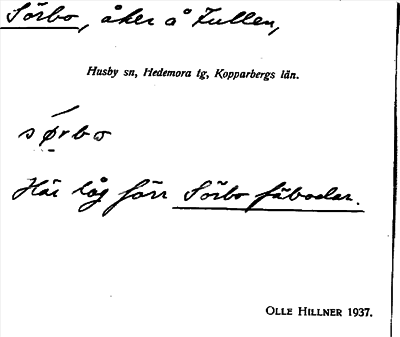 Sörbo, åker å Tullen,
Husby sn, Hedemora tg, Kopparbergs län.
sørbo
Här låg förr Sörbo fäbodar.
OLLE HILLNER 1937.